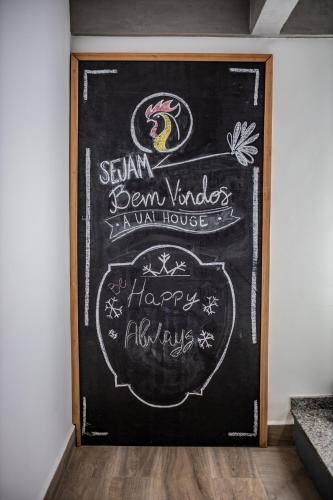 SEJAM
Bem Vindos
A UAI HOUSE
Be
Happy
Always